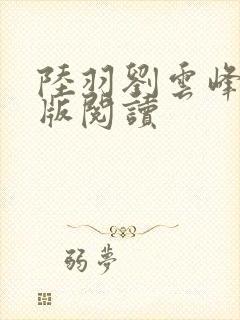 陸羽劉雲峰
版閱讀
弱夢